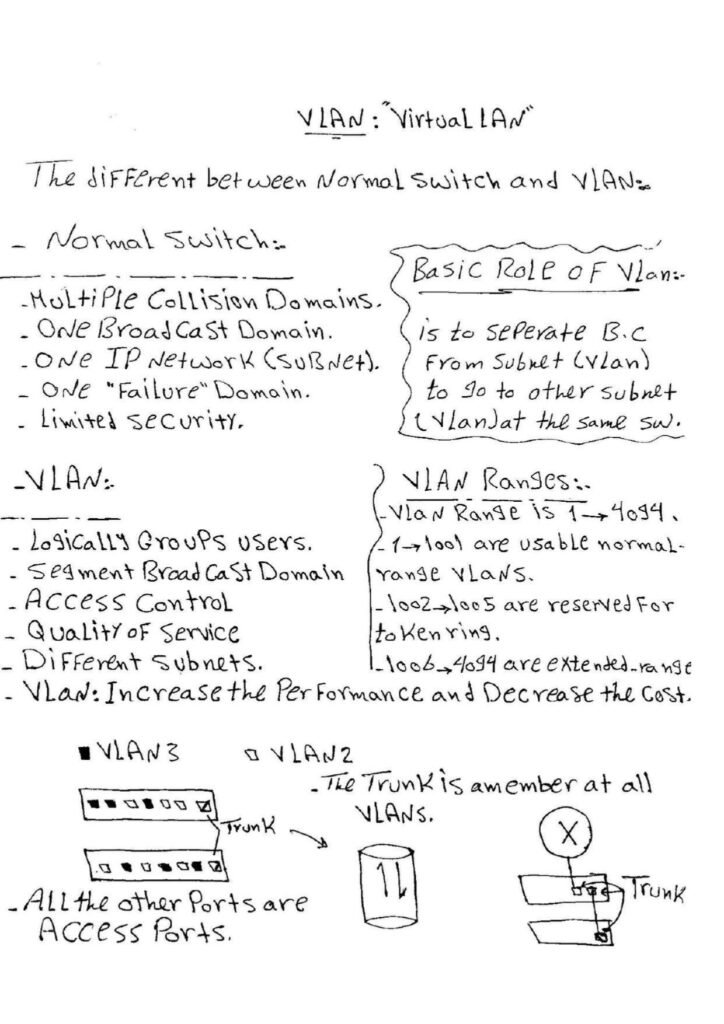 VLAN: "Virtual LAN"
The different between Normal switch and VLAN:-
- Normal switch:-
- Multiple Collision Domains.
- One BroadCast Domain.
- One IP Network (SuBNet).
- One "Failure" Domain.
- Limited security.
Basic Role of Vlan:-
is to seperate B.C
From subnet (Vlan)
to go to other subnet
(Vlan) at the same sw.
- VLAN:-
- Logically Groups users.
- Segment BroadCast Domain
- Access Control
- Quality of service
- Different subnets.
- Vlan: Increase the Performance and Decrease the Cost.
VLAN Ranges:-
- Vlan Range is 1→4094.
- 1→1001 are usable normal-
range VLANs.
- 1002→1005 are reserved for
token ring.
- 1006→4094 are extended-range
VLAN3
VLAN2
- The Trunk is amember at all
VLANs.
Trunk
X
Trunk
- All the other Ports are
Access Ports.